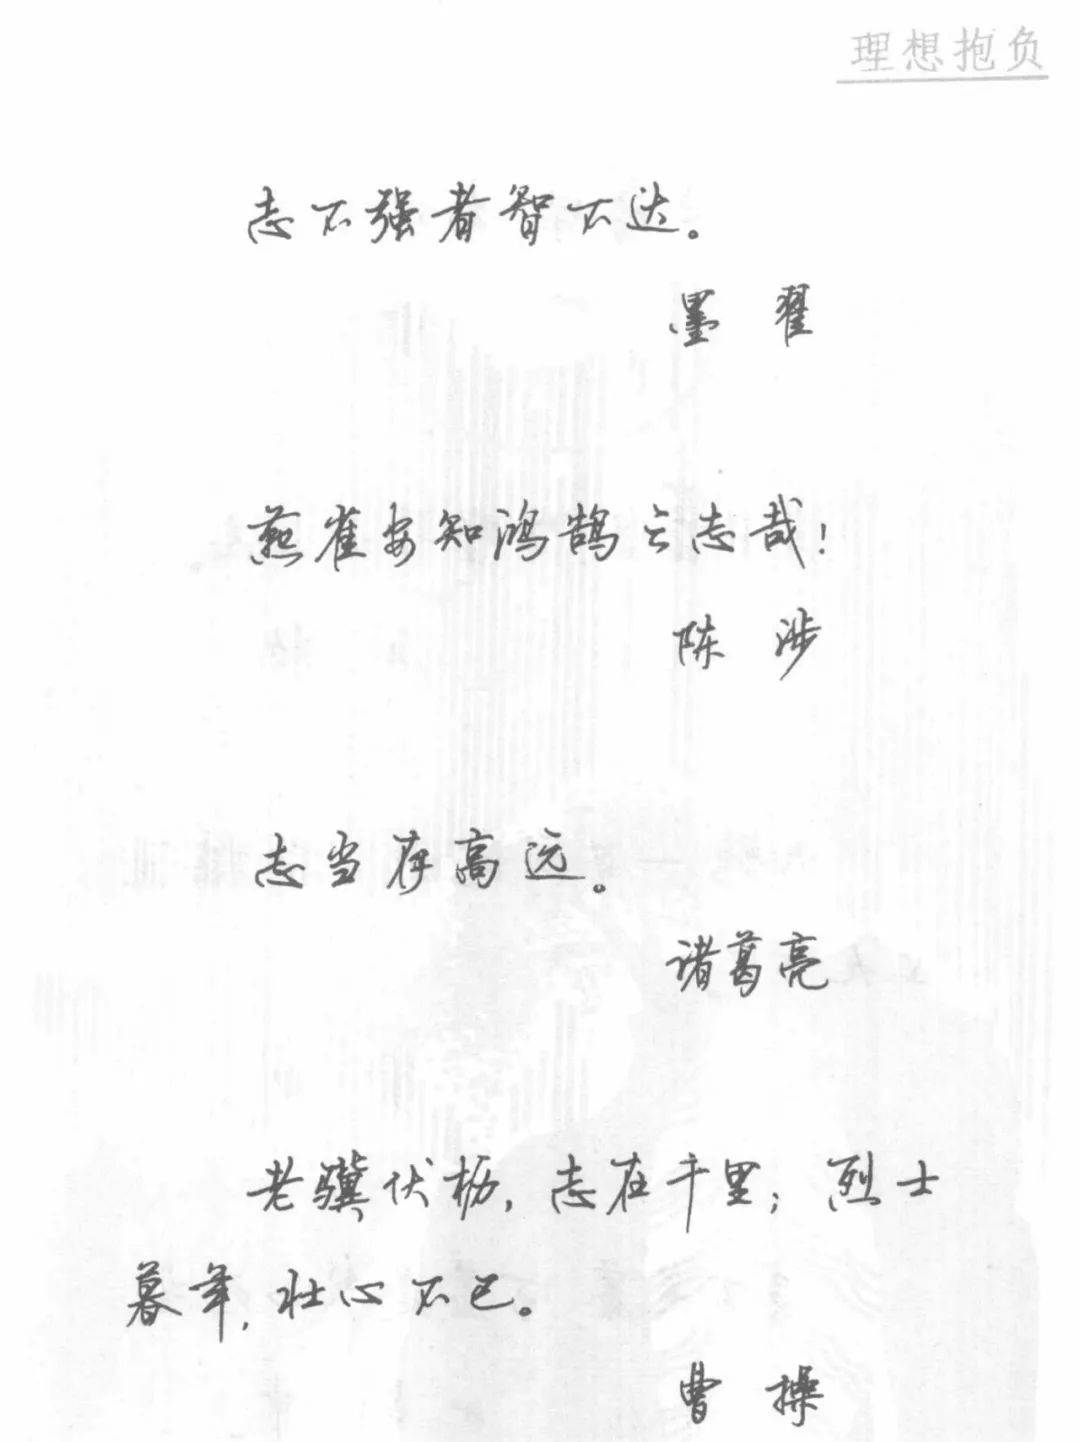 理想抱负
志不强者智不达。
墨翟
燕雀安知鸿鹄之志哉！
陈涉
志当存高远。
诸葛亮
老骥伏枥，志在千里；烈士
暮年，壮心不已。
曹操